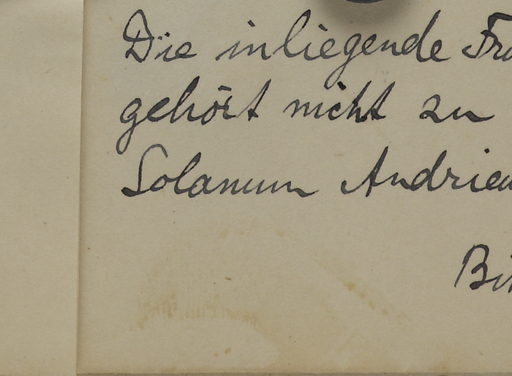 Die inliegende Fru
gehört nicht zu
Solanum Andrieu
Bit